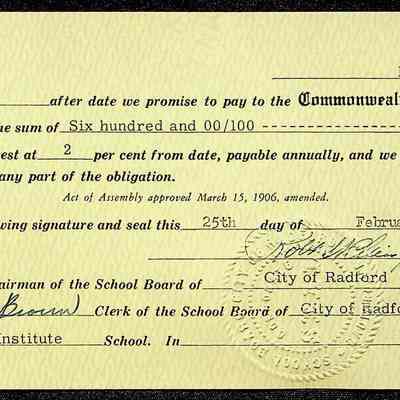 after date we promise to pay to the Commonweal
he sum of Six hundred and 00/100
est at 2 per cent from date, payable annually, and we
any part of the obligation.
Act of Assembly approved March 15, 1906, amended.
wing signature and seal this 25th day of Februa
airman of the School Board of City of Radford
Brown Clerk of the School Board of City of Radfo
Institute School. In